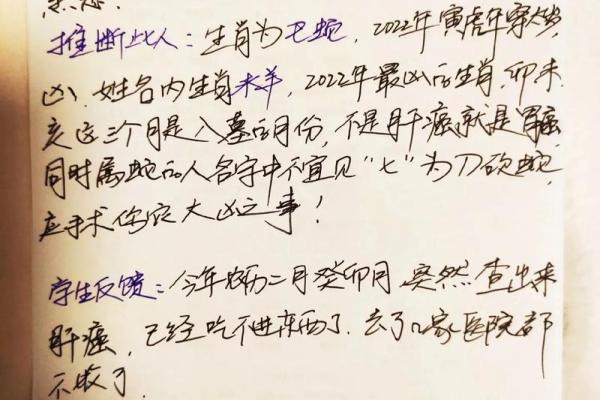 推断此人：生肖为巳蛇，2022年寅虎年穿太岁，
凶，姓名内生肖未羊，2022年最凶的生肖，卯未
亥这三个月是入墓的月份，不是肝癌就是胃癌，
同时属蛇的人名字中不宜见“七”为刀砍蛇，
应手术伤灾大凶之事！
学生反馈：今年农历二月癸卯月，突然查出来
肝癌，已经吃不进东西了，去了几家医院都
不收了．